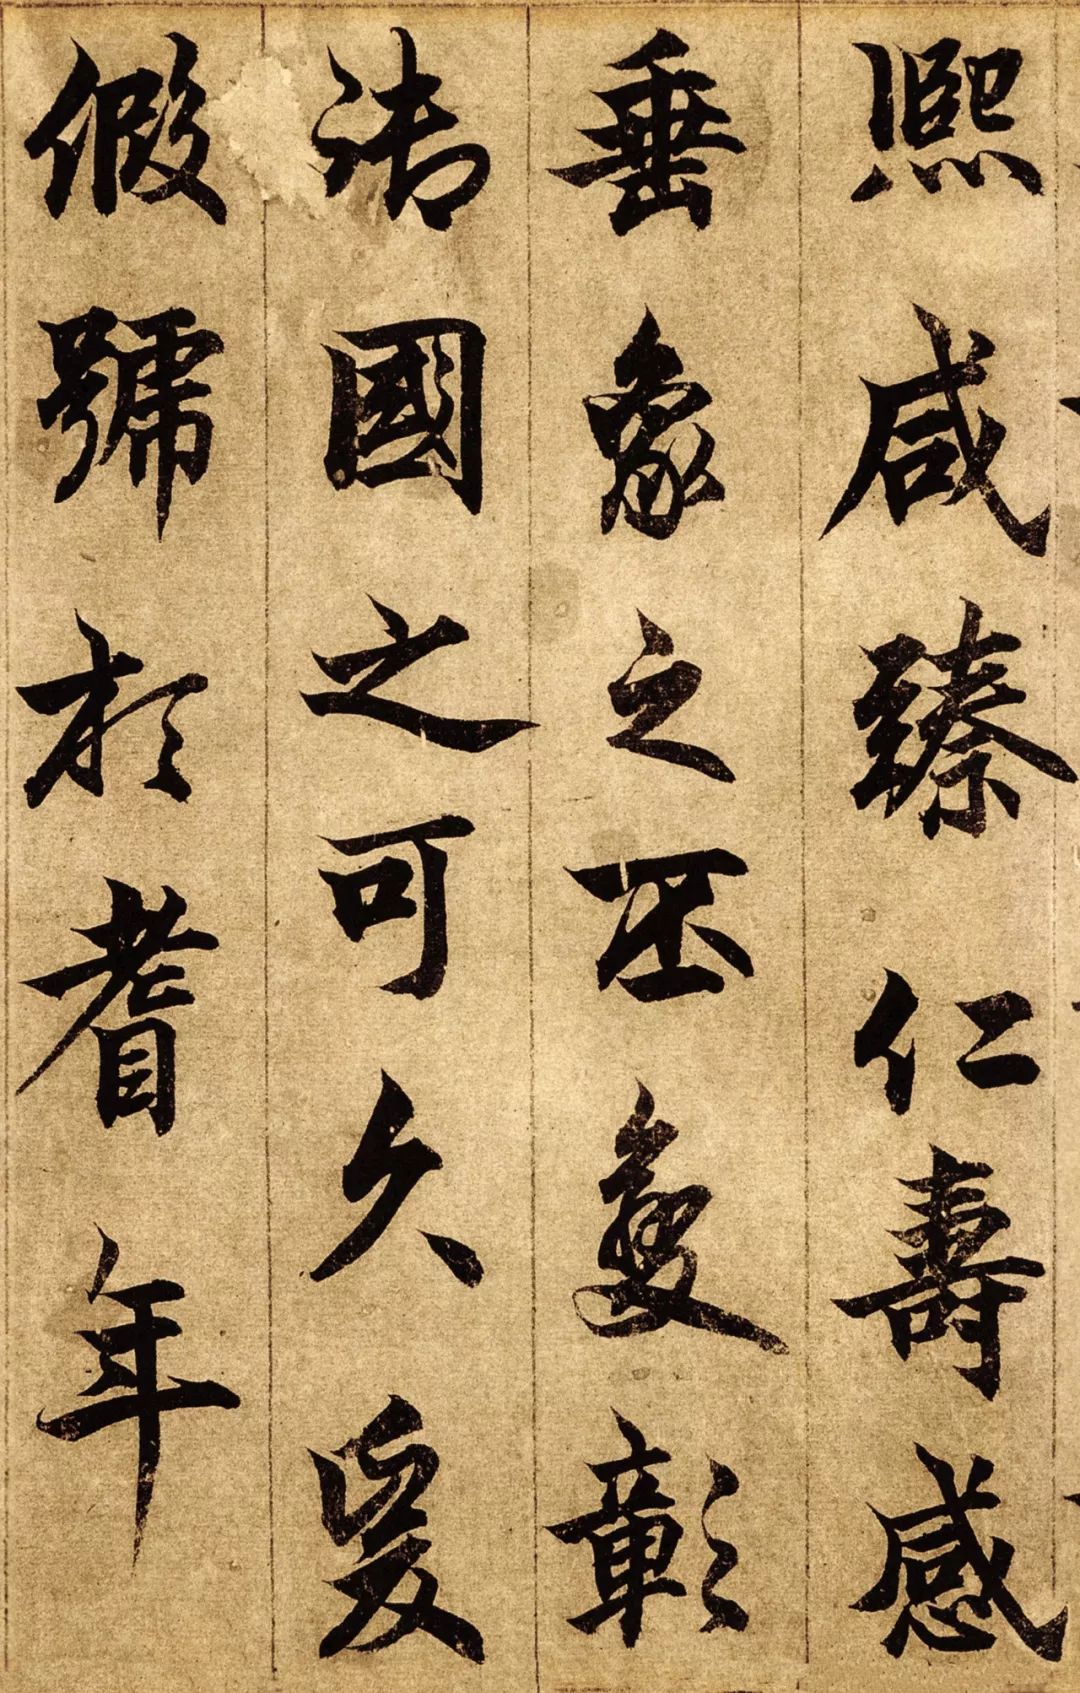 熙咸臻仁壽感
垂象之丕夐彰
御國之可久爰
假號於耆年